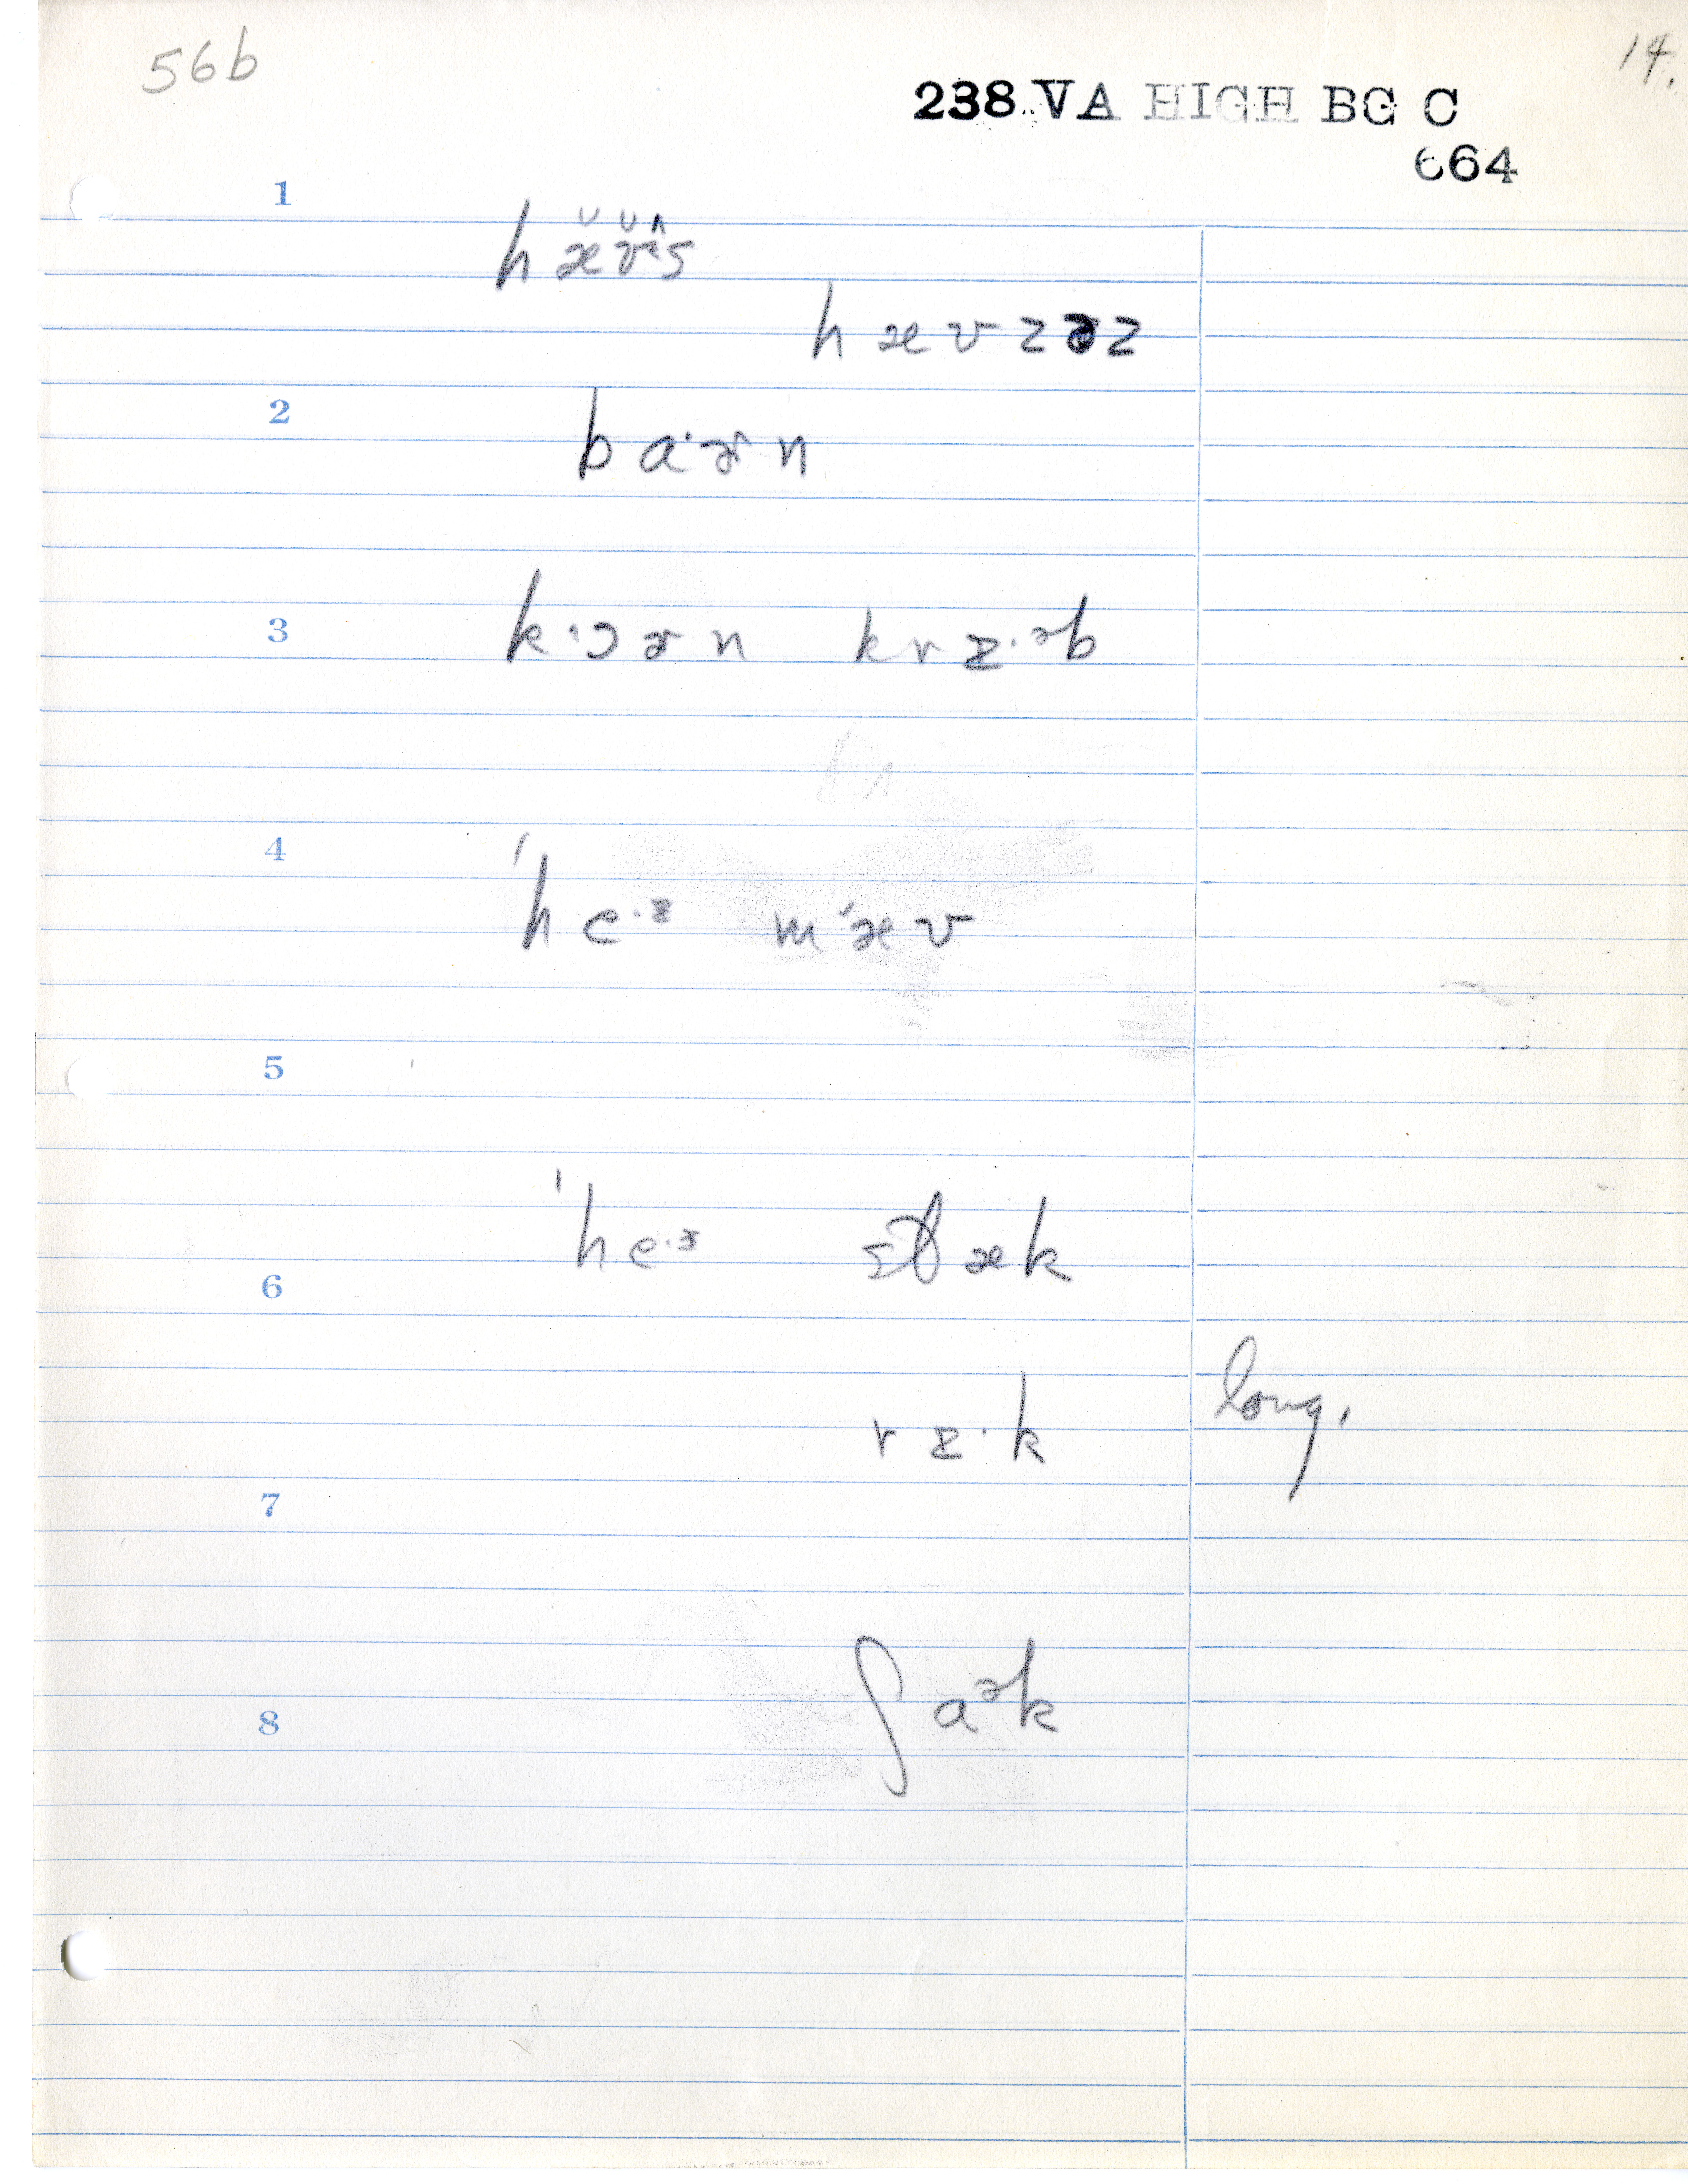 56b
14.
238 VA HIGH BG C
664
1
hæ̆v̆ʌ̂s
hævzəz
2
ba·ɚn
3
k·ɔɚn krɪ·əb
4
ˈhe·ɪ mæv
5
ˈhe·ɪ stæk
6
rɪ·k long.
7
ʃaək
8